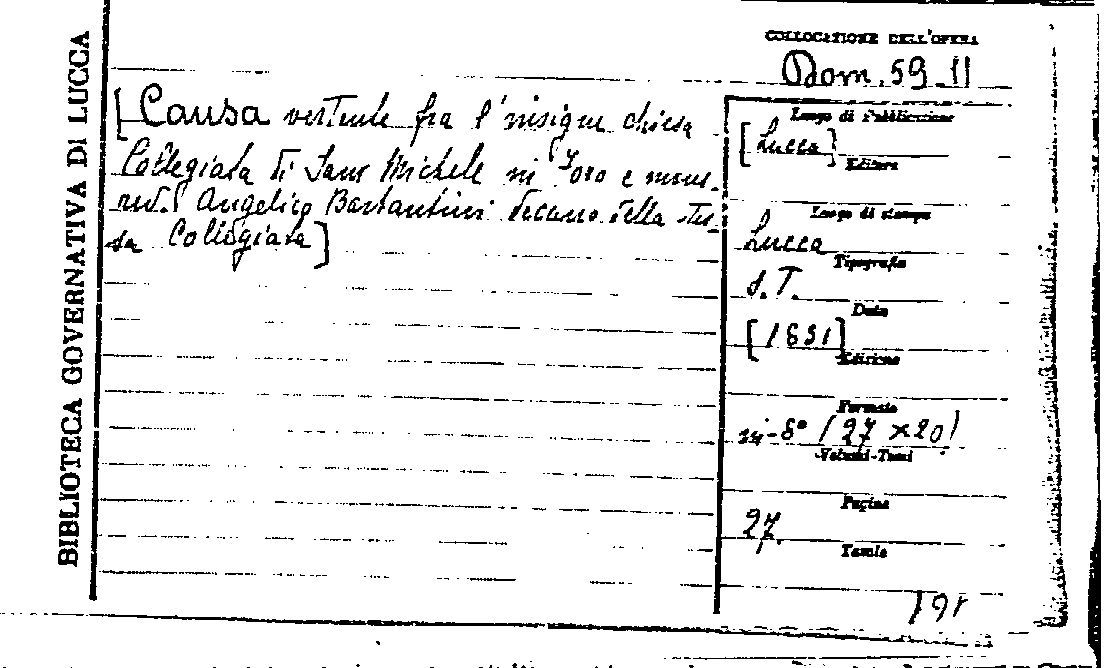 BIBLIOTECA GOVERNATIVA DI LUCCA
COLLOCAZIONE DELL'OPERA
Dom. 59_11
[Causa vertente fra l'insigne chiesa
Collegiata di San Michele in Foro e mons.
Angelico Bartantini decano della stes-
sa Collegiata]
Luogo di Pubblicazione
[Lucca]
Editore
Luogo di stampa
Lucca
Tipografia
s.T.
Data
[1851]
Edizione
Formato
in-8° (27 × 20)
Volumi-Tomi
Pagine
27.
Tavole